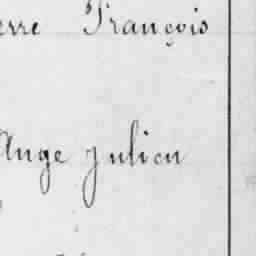 erre François
Ange Julien